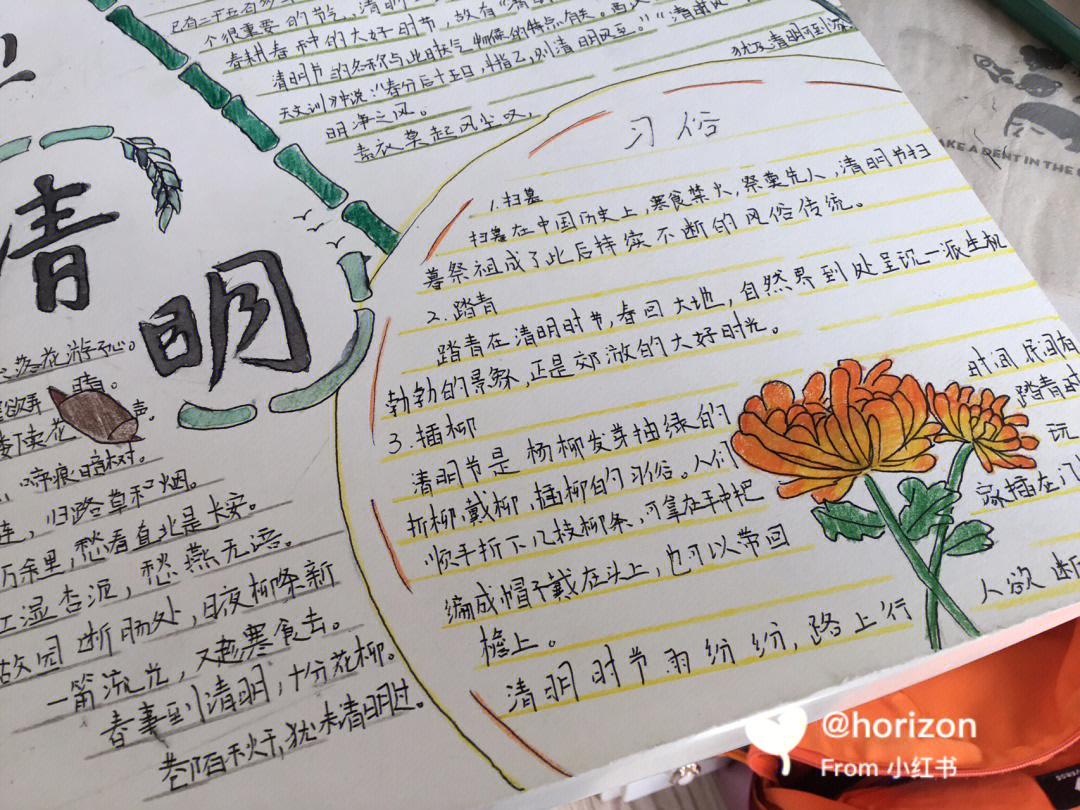 个很重要的节气,清明
春耕春种的大好时节,故有"清
清明节的名称与此时天气物候的特点有关。
天文训》中说:"春分后十五日,斗指乙,则清明风至。""清明风
明净之风。
素衣莫起风尘叹,
犹及清明
清
明
落花游子心。
晴。
声。
卖花
归路草和烟。
万余里,愁看直北是长安。
江湿杏泥,愁燕无语。
故园断肠处,日夜柳条新
一篙流见,又趁寒食去。
春事到清明,十分花柳。
巷陌秋千,犹未清明过。
习俗
1.扫墓
扫墓在中国历史上,寒食禁火,祭奠先人,清明节扫
墓祭祖成了此后持续不断的风俗传统。
2.踏青
踏青在清明时节,春回大地,自然界到处呈现一派生机
勃勃的景象,正是郊游的大好时光。
3.插柳
清明节是杨柳发芽抽绿的时间,民间有
折柳、戴柳、插柳的习俗。人们踏青时
顺手折下几枝柳条,可拿在手中把玩
编成帽子戴在头上,也可以带回家插在门
檐上。
清明时节雨纷纷,路上行人欲断
@horizon
From 小红书